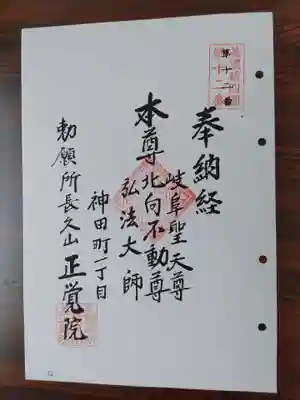 第十二番
奉納経
岐阜聖天尊
本尊北向不動尊
弘法大師
神田町一丁目
勅願所長久山正覚院